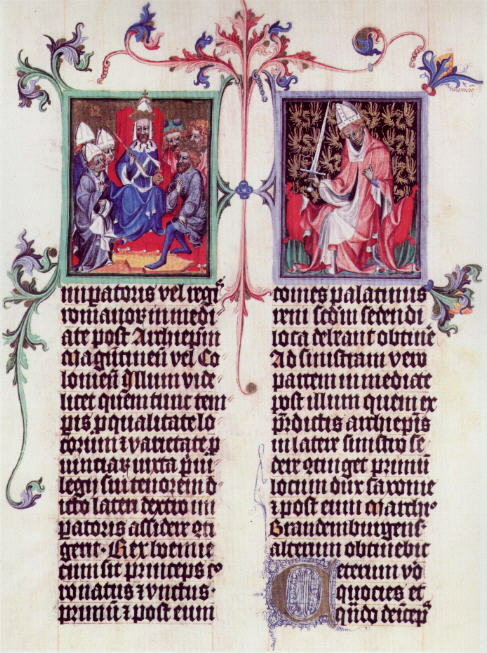 impatoris vel regꝭ
romanoꝝ immedi
ate post Archiepm̄
Maguntineñ vel Co
lonieñ Illum vide
licet quem tunc tem
pis ꝑ qualitate lo
corum ⁊ varietate ꝓ
vinciaꝝ iuxta pͥui
legij sui tenorem d
icto lateri dextro im
patoris assidere ɔti
gerit. Rex boemie
cum sit princeps co
ronatus ⁊ vnctus.
primū ⁊ post eum
comes palatinus
reni scdm sedendi
loca debeant obtinē
Ad sinistram vero
partem immediate
post illum quem ex
p̄dictis archiepīs
in latere sinistro se
dere ɔtinget primū
locum dux Saxonie
⁊ post eum marchi
Brandemburgens̄
alterum obtinebit
Ceterum vo
quocies et
qn̄do deīcep